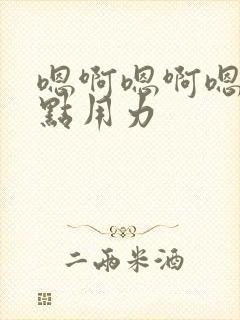 嗯啊嗯啊嗯
點用力
二兩米酒